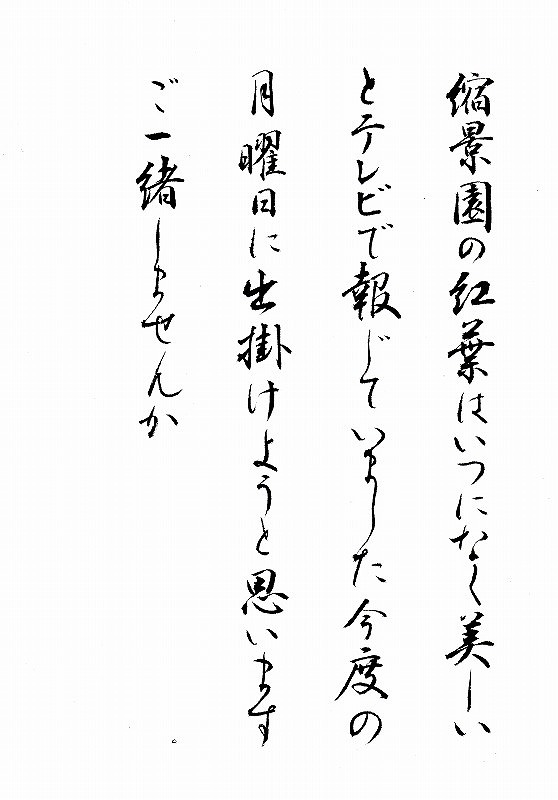 縮景園の紅葉はいつになく美しい
とテレビで報じていました今度の
月曜日に出掛けようと思います
ご一緒しませんか